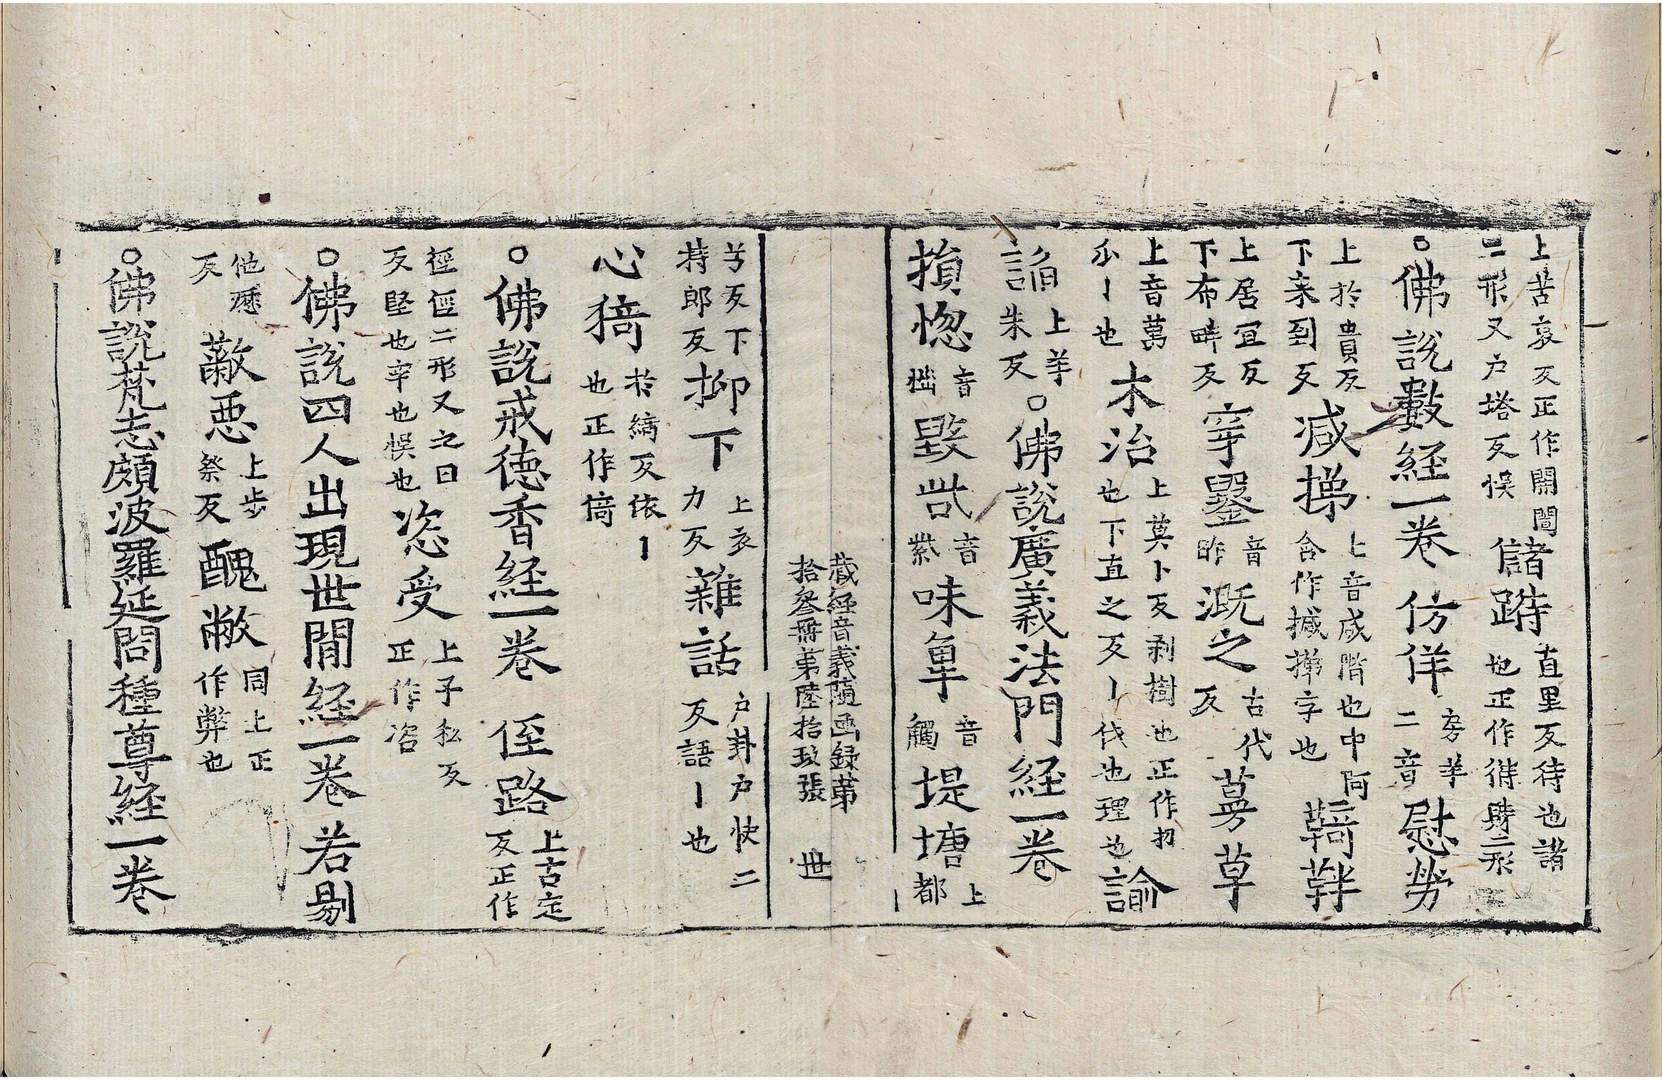 上苦哀反正作開闓二形又户塔反悮儲跱直里反待也諸也正作偫跱二形
○佛說數經一卷仿佯房羊二音慰勞
上於貴反下来到反减挮上音咸階也中阿含作摵挮字也鞛靽
上居宜反下布畔反穿鑿音昨溉之古代反䓪草
上音萬㕵丨也木治上莫卜反剥樹也正作㓟也下直之反丨伐也理也諭
諂上羊朱反○佛說廣義法門經一卷
損惚音𢡚毀呰音紫味𠦪音觸堤塘上都
藏經音義隨函録第拾叅冊第陸拾玖張 世
兮反下持郎反抑下上衣力反雜話户卦户快二反語丨也
心猗於綺反依丨也正作倚
○佛說戒德香經一卷俓路上古定反正作
徑俓二形又之日反堅也牢也悮也恣受上子私反正作咨
○佛說四人出現世閒經一卷若剔
他歷反蔽惡上步祭反醜㡀同上正作弊也
○佛說梵志頗波羅延問種尊經一卷